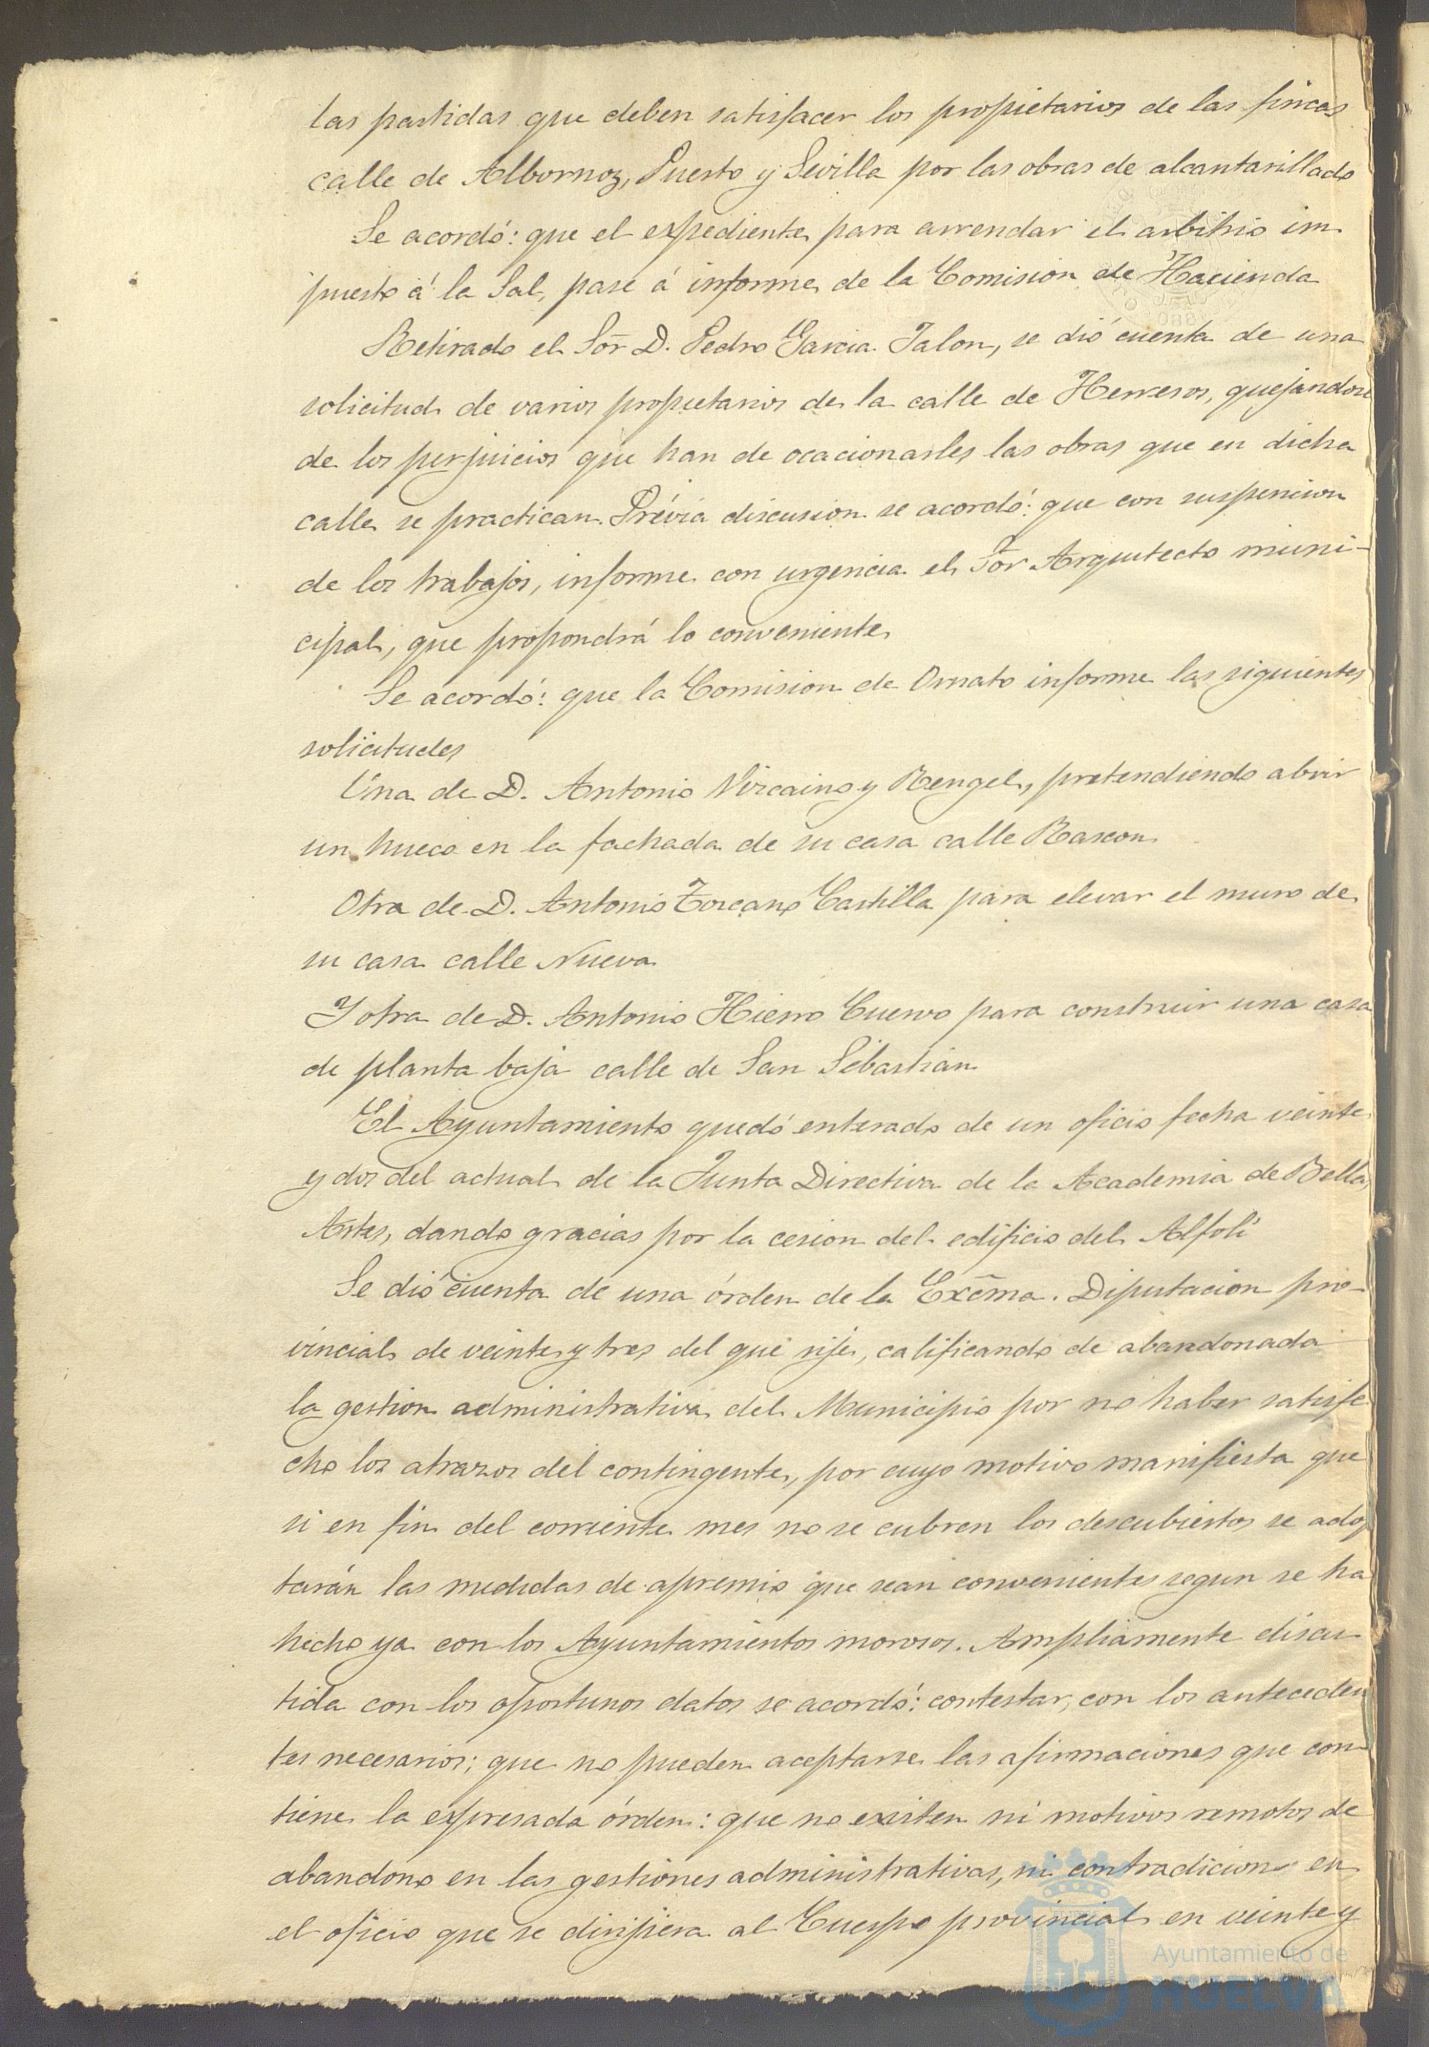 las partidas que deben satisfacer los propietarios de las fincas
calle de Albornoz, Puerto y Sevilla por las obras de alcantarillado
Se acordó: que el expediente para arrendar el arbitrio im
puesto á la Sal, pase á informe de la Comision de Hacienda
Retirado el Sor D. Pedro Garcia Jalon, se dió cuenta de una
solicitud de varios propietarios de la calle de Herreros, quejandose
de los perjuicios que han de ocacionarles las obras que en dicha
calle se practican. Prévia discusion se acordó: que con suspension
de los trabajos, informe con urgencia el Sor Arquitecto muni-
cipal, que propondrá lo conveniente
Se acordó: que la Comision de Ornato informe las siguientes
solicitudes
Una de D. Antonio Vizcaino y Rengel, pretendiendo abrir
un hueco en la fachada de su casa calle Rascon
Otra de D. Antonio Toscano Castilla para elevar el muro de
su casa calle Nueva
Y otra de D. Antonio Hierro Cuervo para construir una casa
de planta baja calle de San Sebastian
El Ayuntamiento quedó enterado de un oficio fecha veinte
y dos del actual de la Junta Directiva de la Academia de Bellas
Artes, dando gracias por la cesion del edificio del Alfolí
Se dió cuenta de una órden de la Excma. Diputacion pro-
vincial de veinte y tres del que rije, calificando de abandonada
la gestion administrativa del Municipio por no haber satisfe
cho los atrazos del contingente, por cuyo motivo manifiesta que
si en fin del corriente mes no se cubren los descubiertos se adop
tarán las medidas de apremio que sean convenientes segun se ha
hecho ya con los Ayuntamientos morosos. Ampliamente discu-
tida con los oportunos datos se acordó: contestar, con los anteceden
tes necesarios; que no pueden aceptarse las afirmaciones que con
tiene la expresada órden: que no existen ni motivos remotos de
abandono en las gestiones administrativas, ni contradicion en
el oficio que se dirijiera al Cuerpo provincial en veinte y
Ayuntamiento de
HUELVA